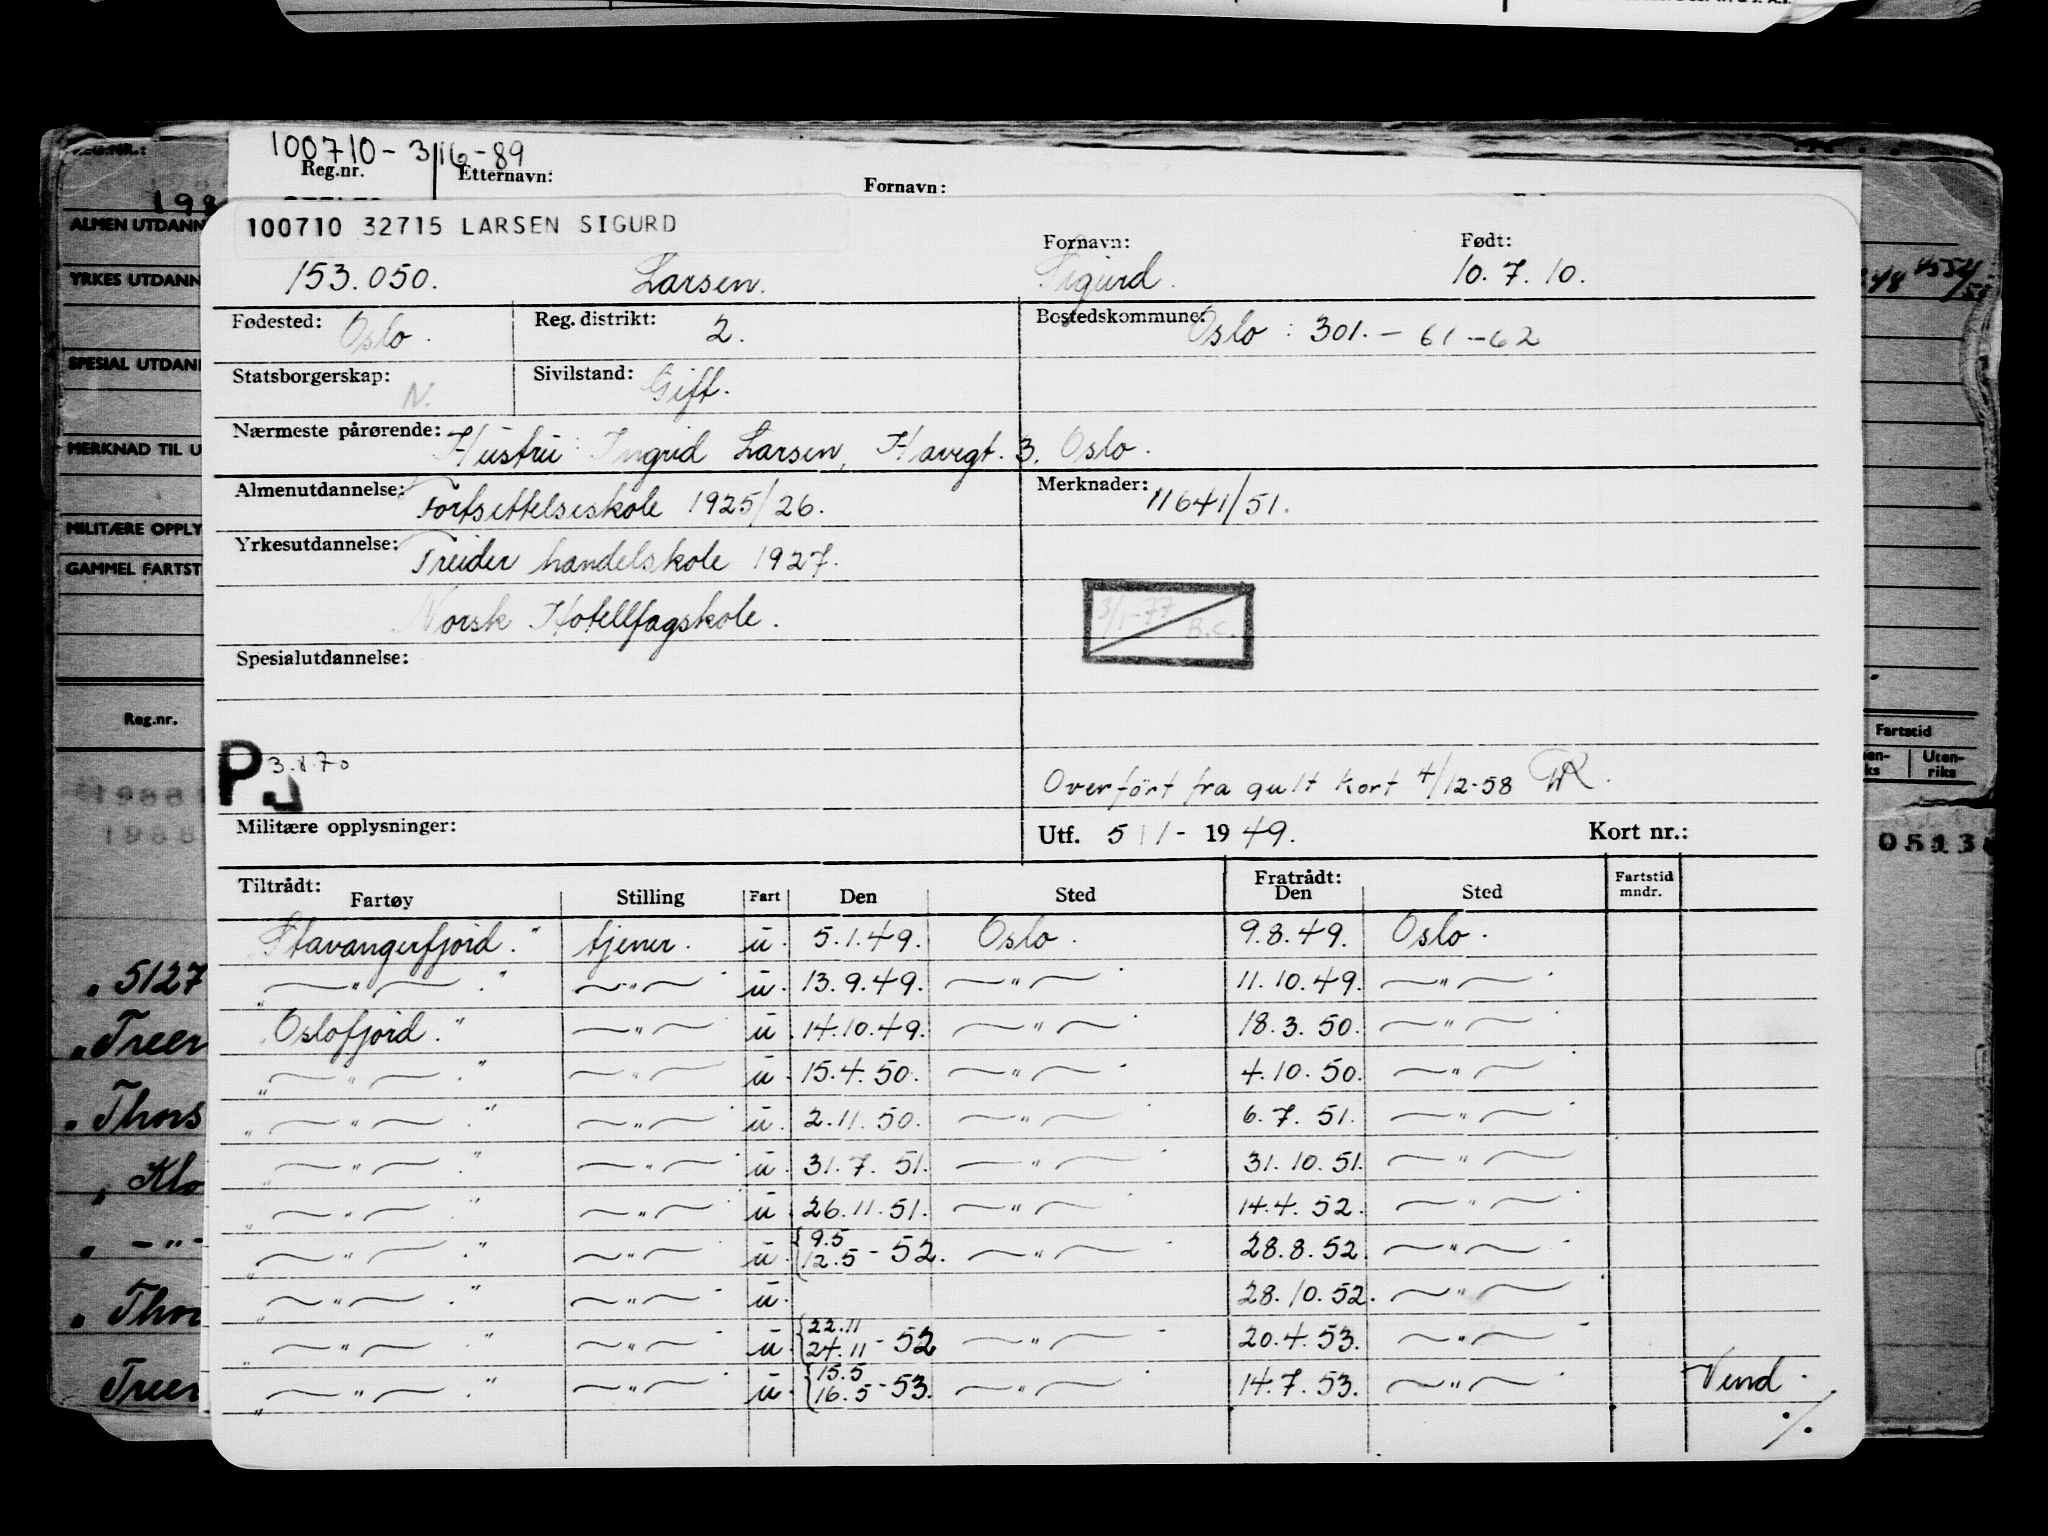 100710 - 3/16-89
Reg.nr. Etternavn: Fornavn:
REG.NR.:
ALMEN UTDANN
YRKES UTDANN
SPESIAL UTDAN
MERKNAD TIL U
MILITÆRE OPPLY
GAMMEL FARTST
Reg.nr.
" 5127
" Treer
" Thors
" Klo
" - " -
" Thor
Treer
100710 32715 LARSEN SIGURD
Fornavn: Født:
153.050. Larsen. Sigurd. 10.7.10.
Fødested: Oslo. Reg. distrikt: 2. Bostedskommune: Oslo: 301. - 61 - 62
Statsborgerskap: N. Sivilstand: Gift.
Nærmeste pårørende: Hustru: Ingrid Larsen, Havegt. 3. Oslo.
Almenutdannelse: Fortsettelseskole 1925/26. Merknader: 11641/51.
Yrkesutdannelse: Treider handelskole 1927.
Norsk Hotellfagskole.
3/1-77 B.C.
Spesialutdannelse:
P 3.8.70
Overført fra gult kort 4/12-58
Militære opplysninger: Utf. 5/1 - 1949. Kort nr.:
Tiltrådt: Fratrådt: Fartstid
Fartøy Stilling Fart Den Sted Den Sted mndr.
Stavangerfjord." tjener. u. 5.1.49. Oslo. 9.8.49. Oslo.
" — " — ." — " — . u. 13.9.49. — " — . 11.10.49. — " — .
"Oslofjord." — " — . u. 14.10.49. — " — . 18.3.50. — " — .
" — " — ." — " — u. 15.4.50. — " — . 4.10.50. — " — .
" — " — ." — " — . u. 2.11.50. — " — . 6.7.51. — " — .
" — " — ." — " — . u. 31.7.51. — " — . 31.10.51. — " — .
" — " — ." — " — . u. 26.11.51. — " — . 14.4.52. — " — .
" — " — ." — " — . u. {9.5 12.5 - 52. — " — . 28.8.52. — " — .
" — " — ." — " — . u. 28.10.52. — " — .
" — " — ." — " — . u. {22.11 24.11 - 52 — " — . 20.4.53. — " — .
" — " — ." — " — . u. {15.5 16.5 - 53. — " — . 14.7.53. — " — . Vend.
./.
Fartstid
Uten-
riks